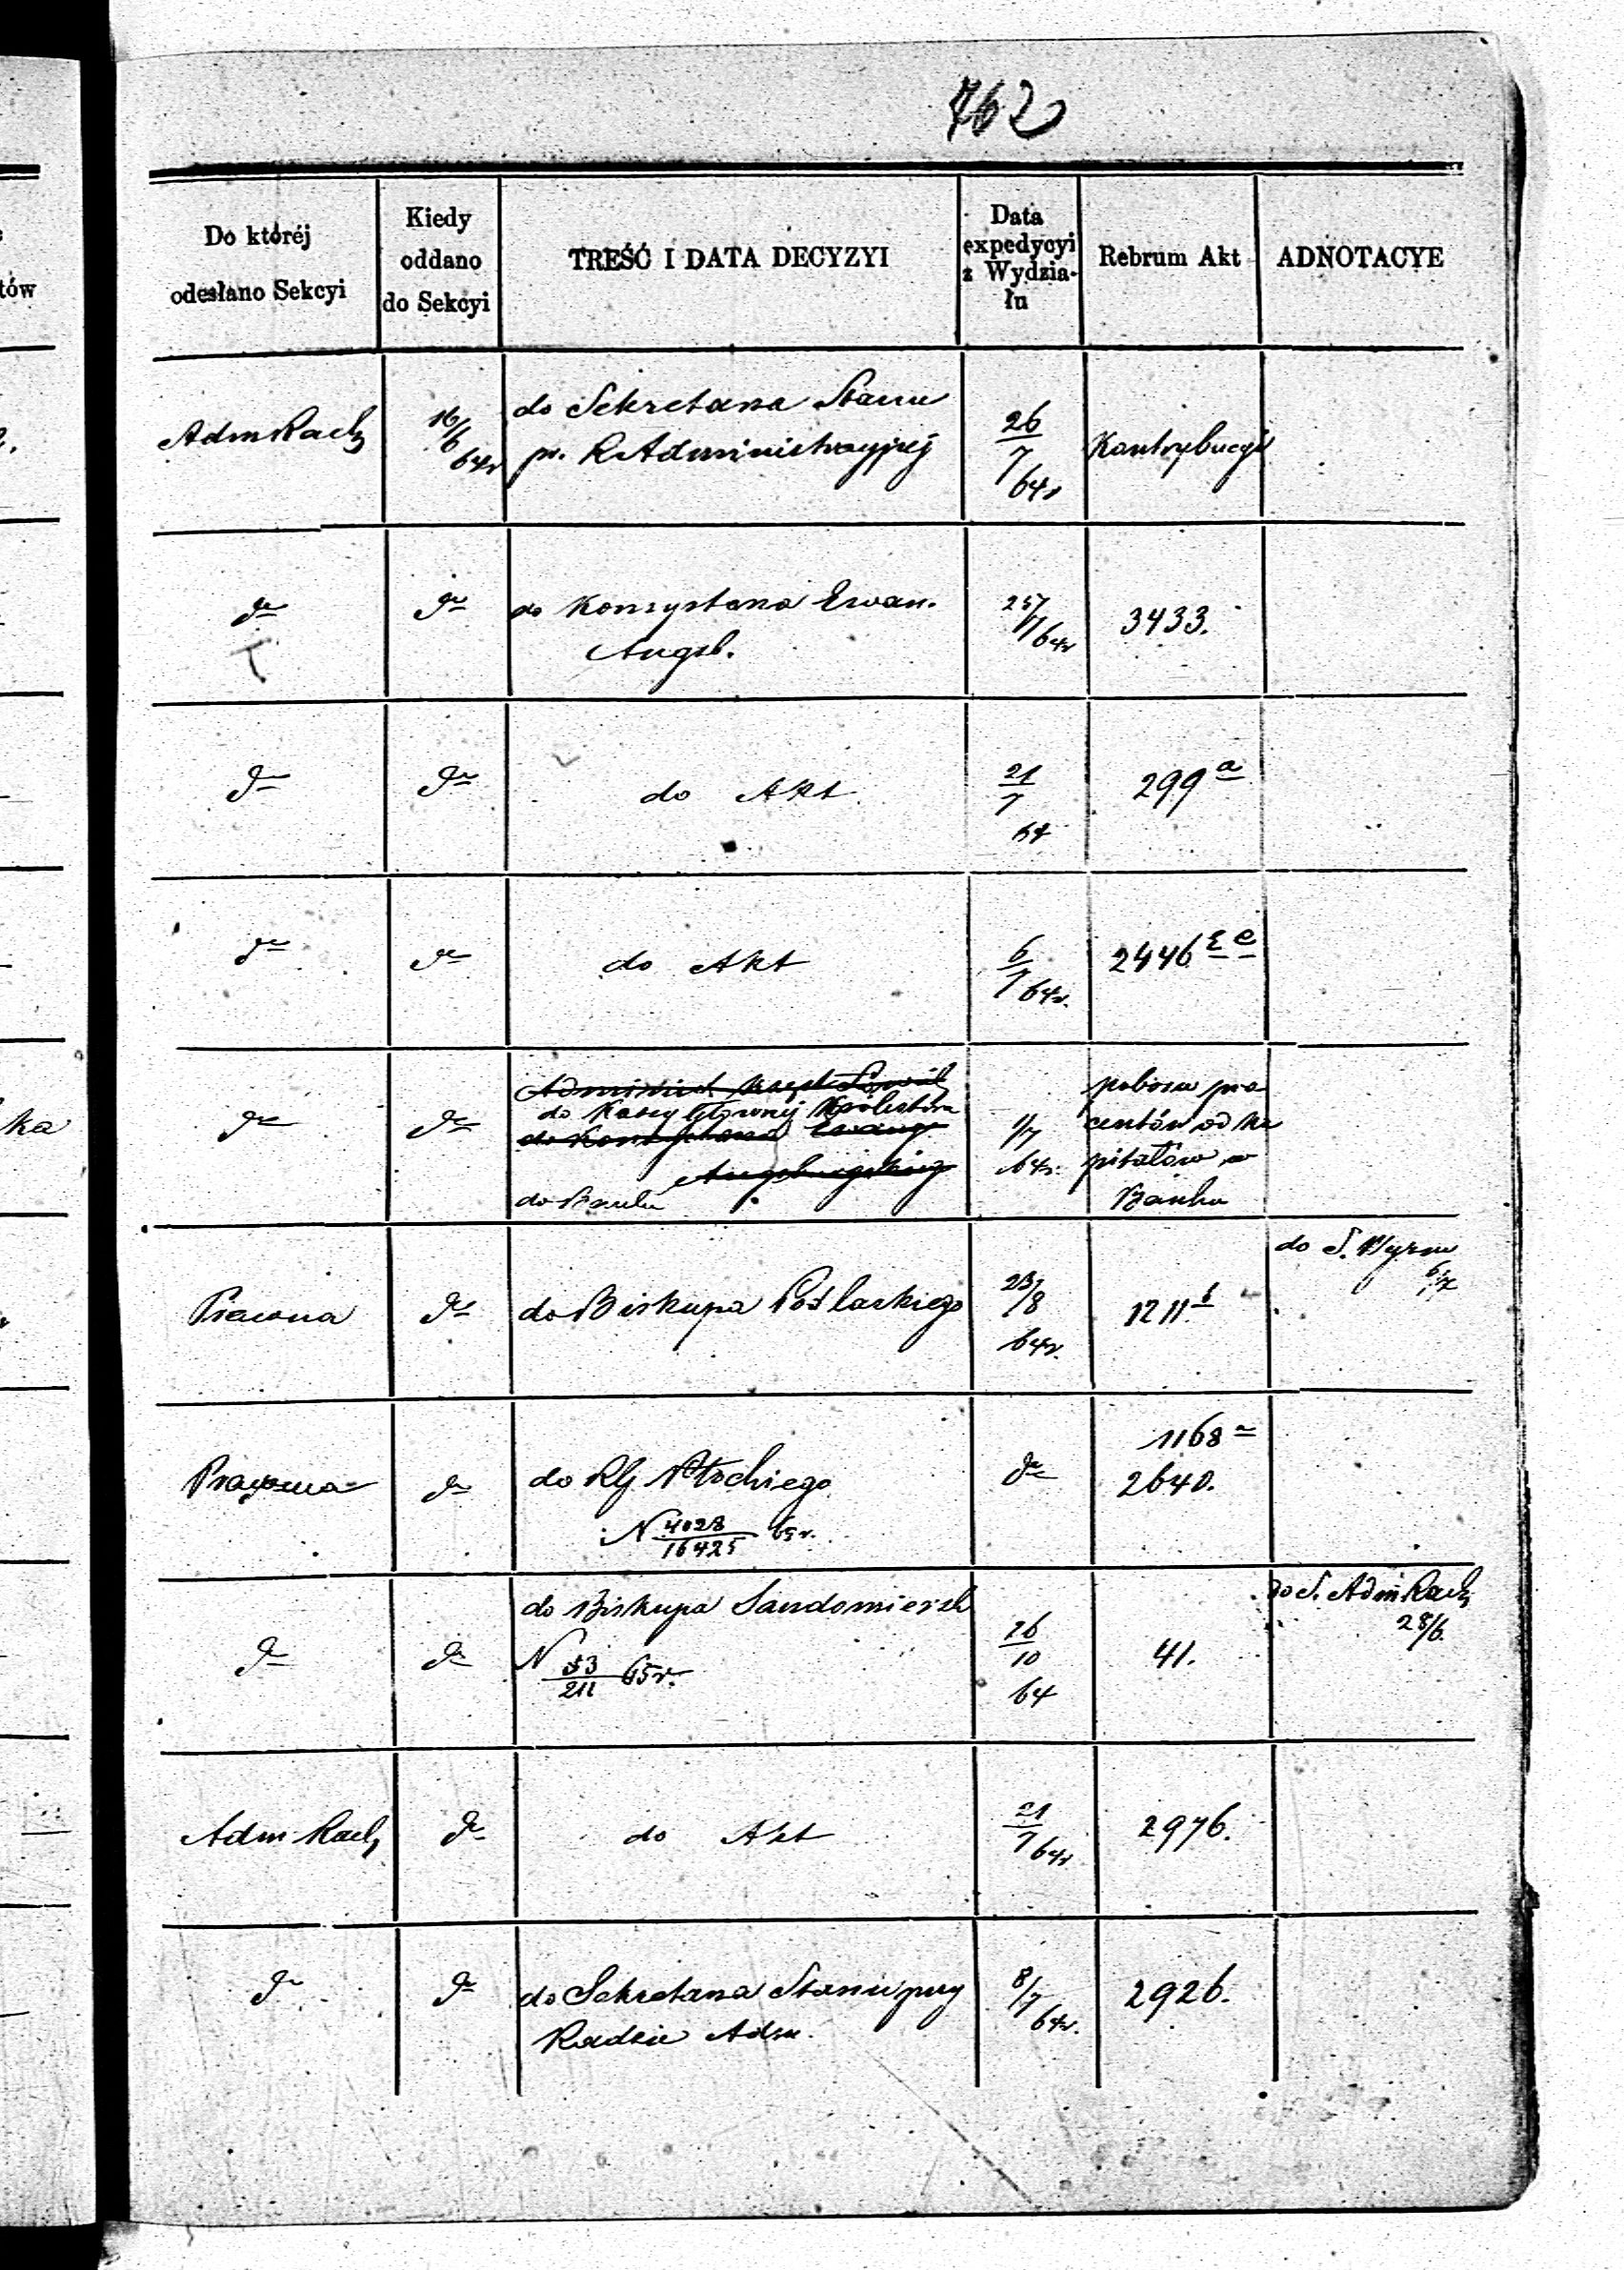 762
tów
ka
Do któréj
odesłano Sekcyi
Kiedy
oddano
do Sekcyi
TREŚĆ I DATA DECYZYI
Data
expedycyi
z Wydzia-
łu
Rebrum Akt
ADNOTACYE
Adm Rach
16/6 64r
do Sekretarza Stanu
pr. R Administracyjnej
26/7 64r
Kontrybucyi
do
do
do Konsystorza Ewan.
Augsb.
25/7 64r
3433.
do
do
do Akt
21/7 64
299 a
do
do
do Akt
6/7 64r.
2446 e
do
do
do Kassy Głównej Królestwa
do Konsystorza Ewang
Augsburgskiego
do Banku
1/7 64r.
poboru pro-
centów od ka
pitałów w
Banku
Prawna
do
do Biskupa Podlaskiego
23/8 64r.
1211
do S.
Prawna
do
do RG Płockiego
N 4028/16425 65r.
do
1168 a
2640.
do
do
do Biskupa Sandomiersk
N 53/211 65r.
26/10 64
41.
do S. Adm Rach
28/6.
Adm Rach
do
do Akt
21/7 64r
2976.
do
do
do Sekretarza Stanu przy
Radzie Adm.
8/7 64r.
2926.